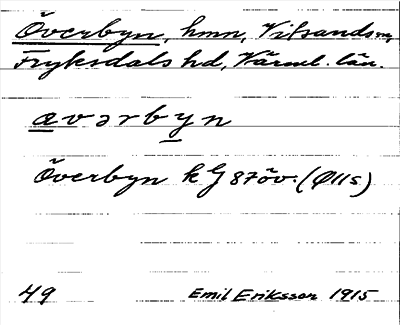 Överbyn, hmn, Vitsands sn,
Fryksdals hd, Värml. län.
avərbyn
Överbyn k G 87öv. (Ø11s)
49 Emil Eriksson 1915